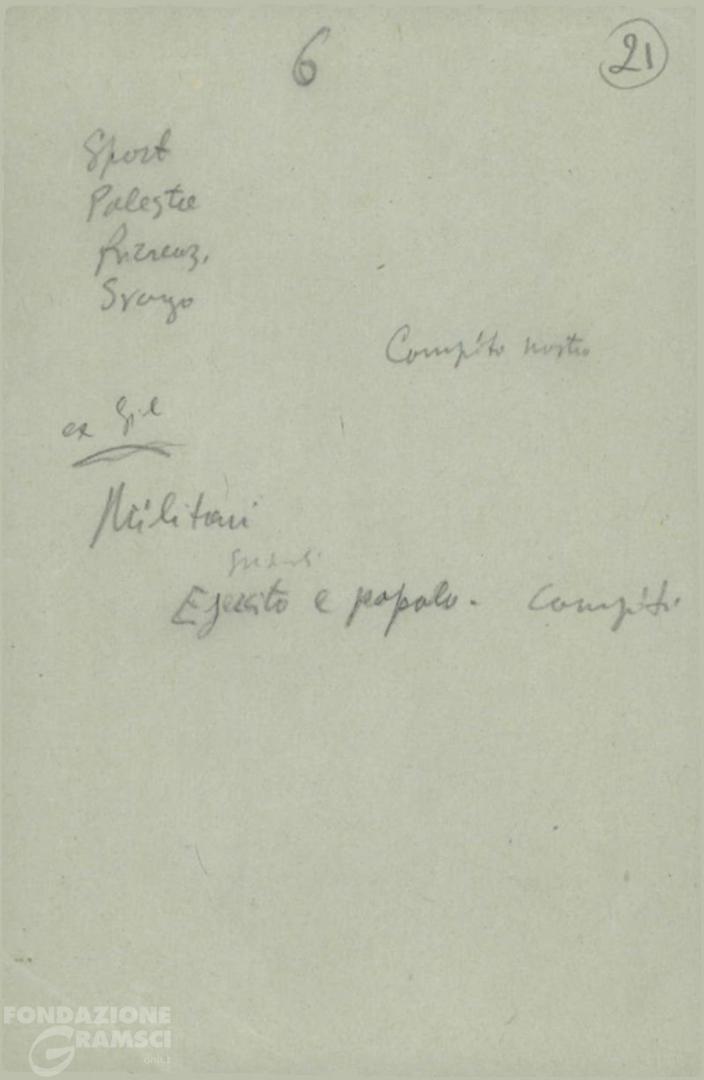 6
21
Sport
Palestre
Ricreaz.
Svago
Compito nostro
ex Gil
Militari
Esercito e popolo. Compiti
FONDAZIONE
GRAMSCI
onlus